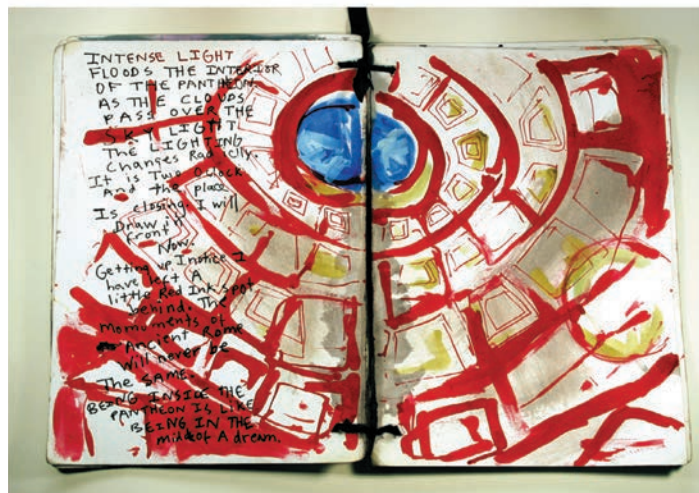 INTENSE LIGHT
FLOODS THE INTERIOR
OF THE PANTHEON.
AS THE CLOUDS
PASS OVER THE
SKY LIGHT
THE LIGHTING
Changes Radically.
It is Two O'clock
And the place
Is closing. I will
Draw it
Front
Now.
Getting up I notice I
have left A
little Red Ink spot
behind. The
momuments of
Ancient Rome
will never be
The SAME.
BEING INSIDE THE
PANTHEON IS LIKE
BEING IN THE
midst of A dream.